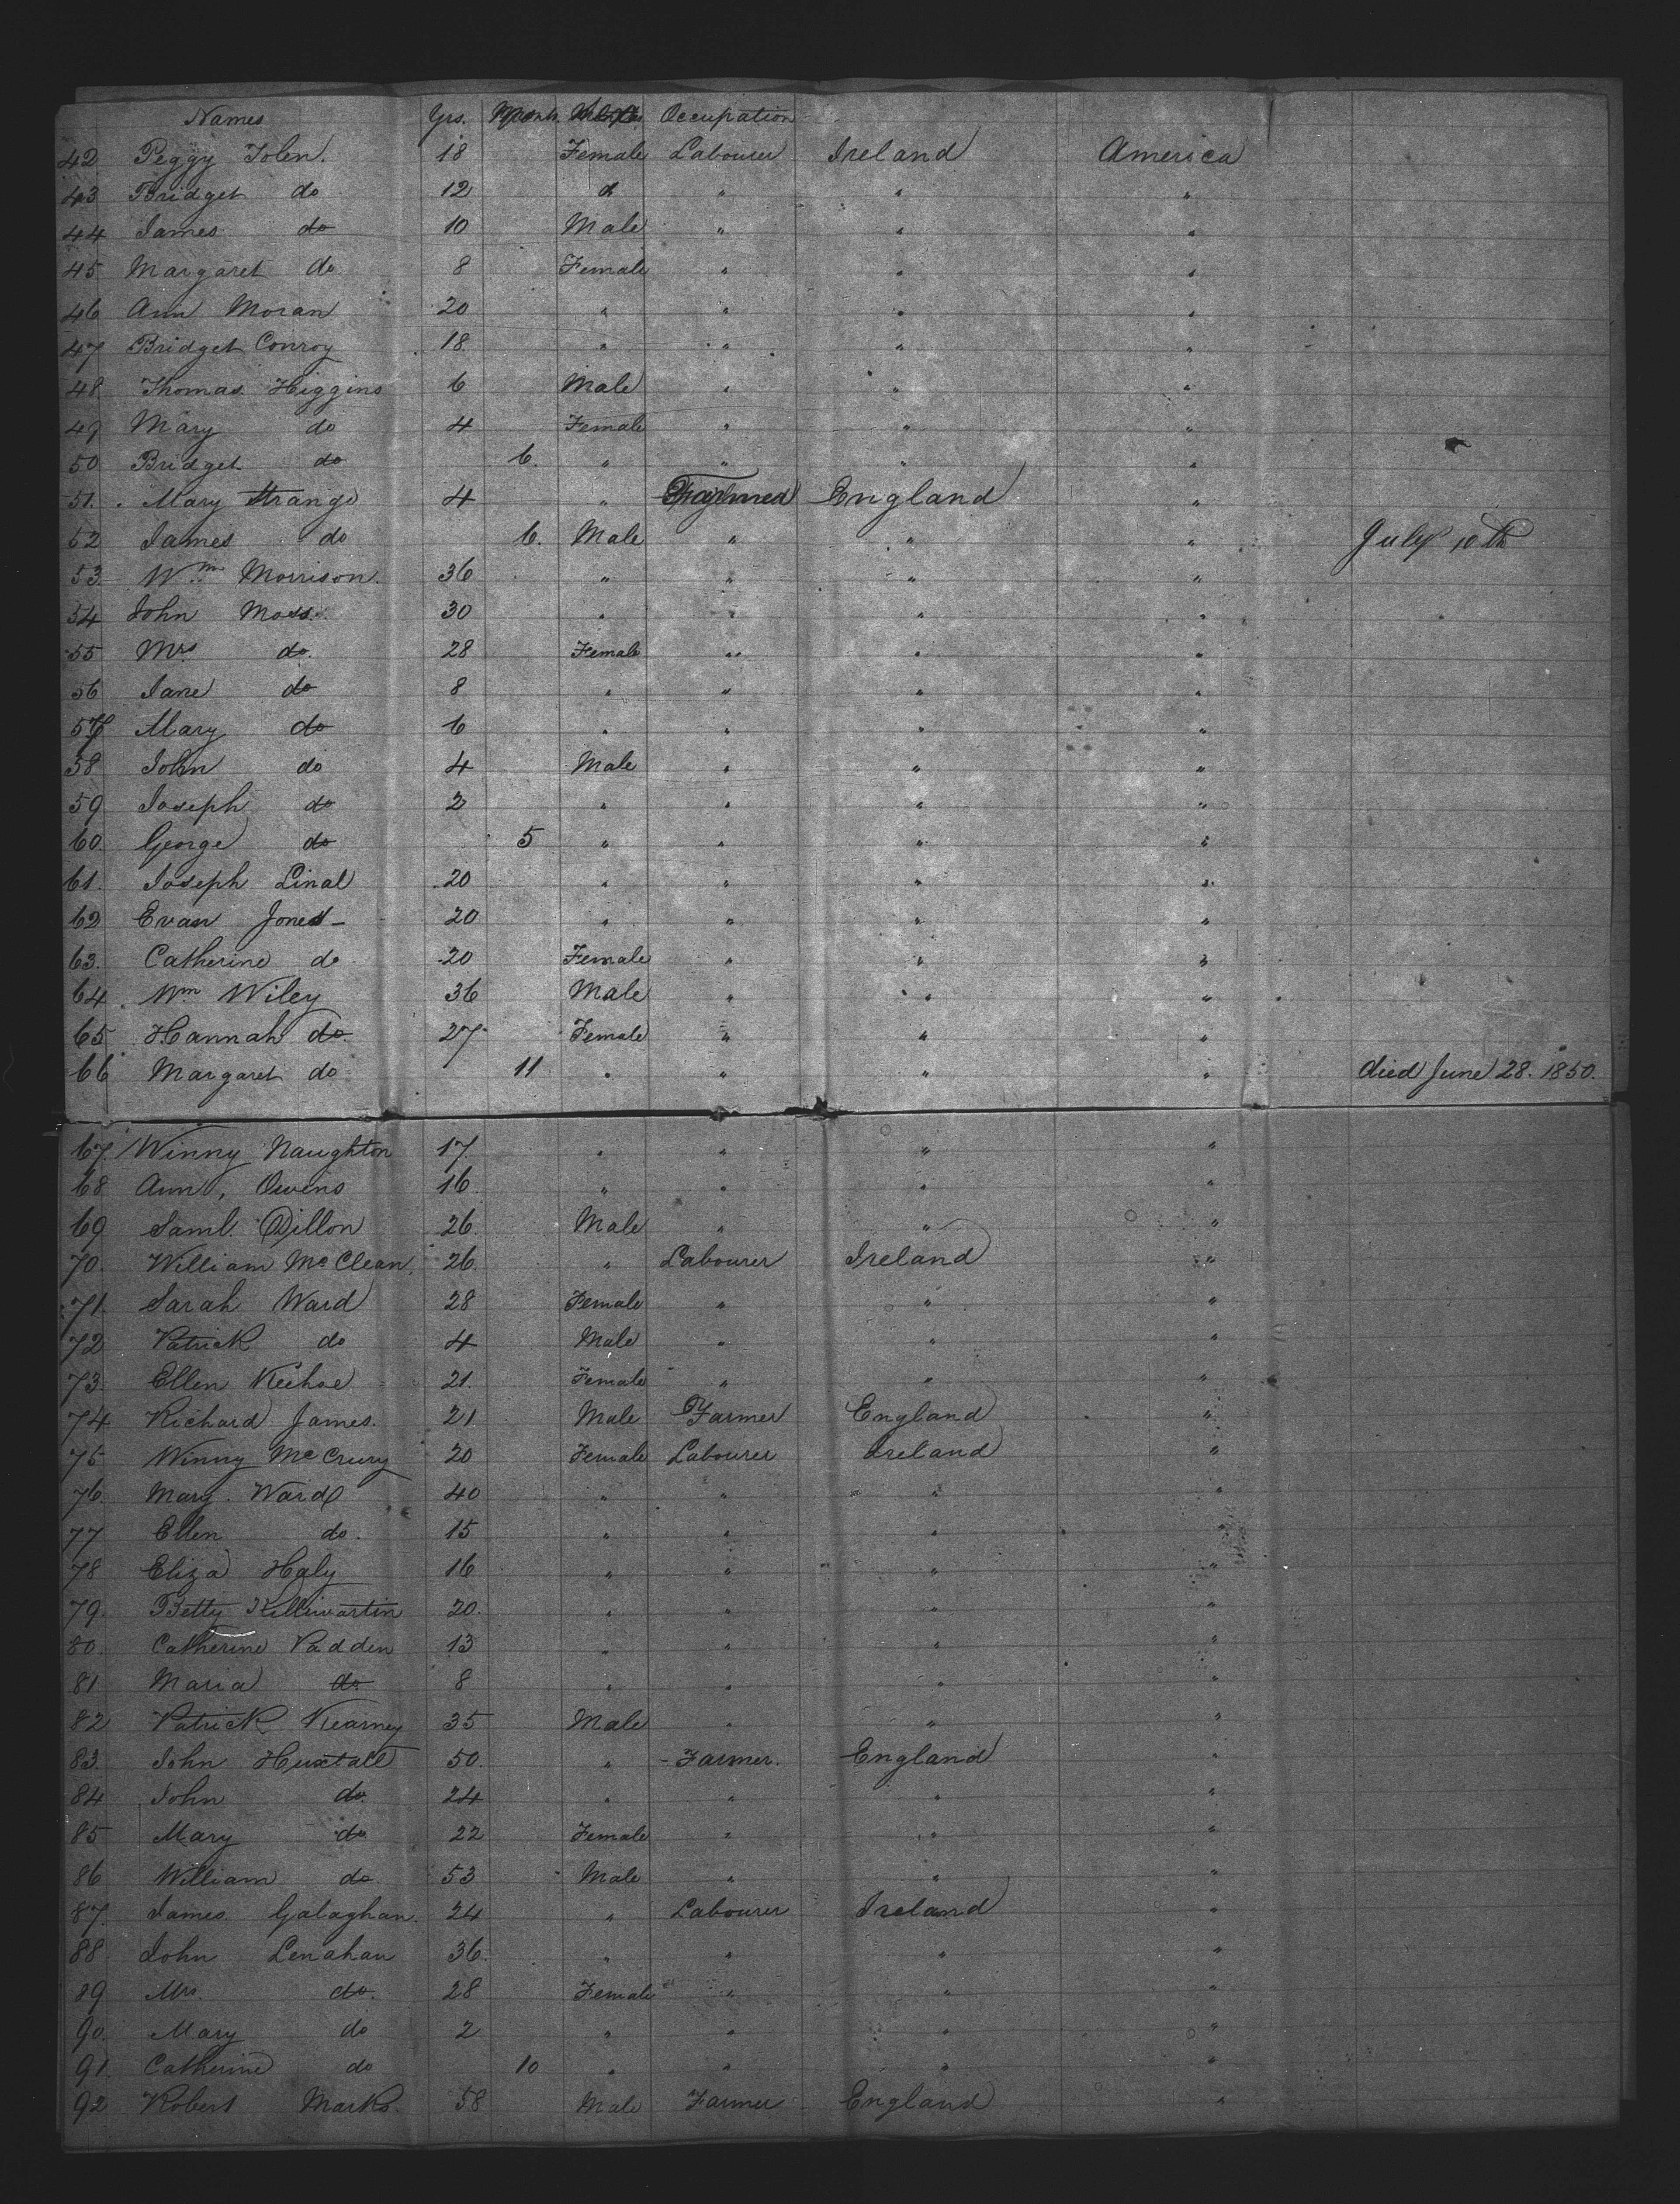 Names Yrs. Months Occupation
42 Peggy Tolen. 18 Female Labourer Ireland America
43 Bridget do 12 " " " "
44 James do 10 Male " " "
45 Margaret do 8 Female " " "
46 Ann Moran 20 " " " "
47 Bridget Conroy 18 " " " "
48 Thomas Higgins 6 Male " " "
49 Mary do 4 Female " " "
50 Bridget do 6. " " " "
51. Mary Strange 4 " England "
52 James do 6. Male " " " July 10th
53 Wm Morrison. 36 " " " "
54 John Moss. 30 " " " "
55 Mrs do. 28 Female " " "
56 Jane do 8 " " " "
57 Mary do 6 " " " "
58 John do 4 Male " " "
59 Joseph do 2 " " " "
60. George do 5 " " " "
61. Joseph Linal 20 " " " "
62 Evan Jones 20 " " " "
63. Catherine do 20 Female " " "
64 Wm Wiley 36 Male " " "
65 Hannah do. 27 Female " " "
66 Margaret do 11 " " " " died June 28. 1850.
67. Winny Naughton 17. " " " "
68 Ann, Owens 16. " " " "
69 Saml. Dillon 26 Male " " "
70. William McClean 26. " Labourer Ireland "
71. Sarah Ward 28 Female " " "
72 Patrick do 4 Male " " "
73 Ellen Keehoe 21. Female " " "
74 Richard James. 21 Male Farmer England "
75 Winny McCrury 20 Female Labourer Ireland "
76 Mary Ward 40 " " " "
77 Ellen do. 15 " " " "
78 Eliza Haly 16 " " " "
79. Betty 20. " " " "
80. Catherine Padden 13 " " " "
81 Maria do 8 " " " "
82 Patrick Kearney 35 Male " " "
83. John Huxtall 50. " Farmer. England "
84 John do. 24 " " " "
85 Mary do 22 Female " " "
86 William do 53 Male " " "
87. James Galaghan. 24 " Labourer Ireland "
88 John Lenahan 36. " " " "
89 Mrs. do. 28 Female " " "
90. Mary do 2 " " " "
91. Catherine do 10 " " " "
92 Robert Marks. 58 Male Farmer England "